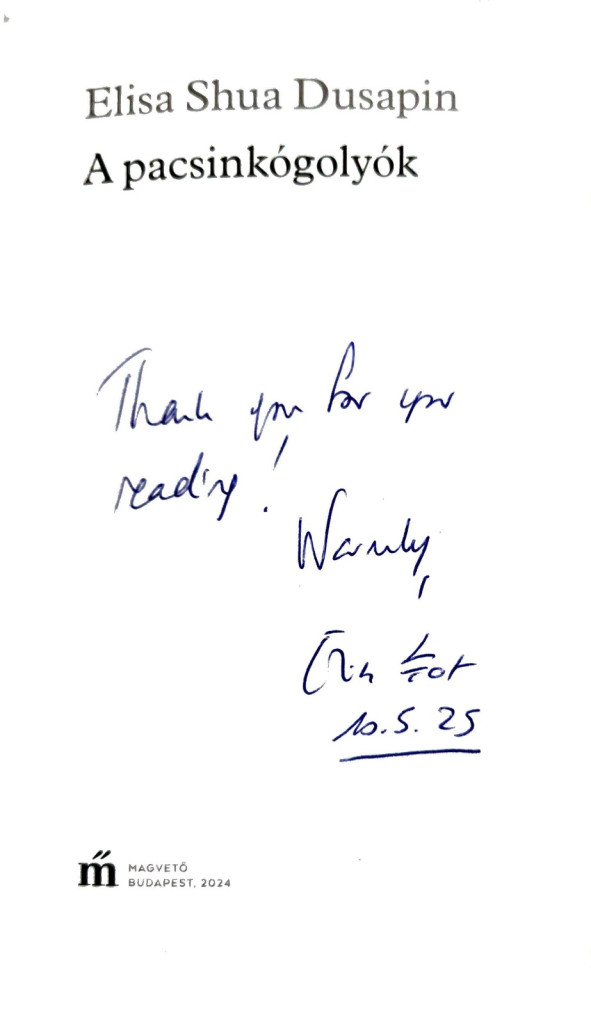 Elisa Shua Dusapin
A pacsinkógolyók
Thank you for your
reading!
Warmly,
10.5.25
m̋ MAGVETŐ
BUDAPEST, 2024